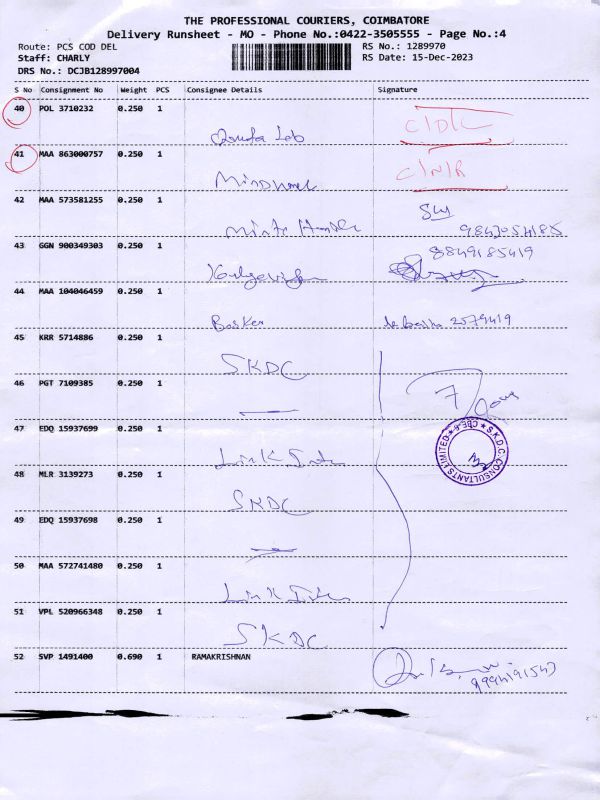 THE PROFESSIONAL COURIERS, COIMBATORE
Delivery Runsheet - MO - Phone No.:0422-3505555 - Page No.:4
Route: PCS COD DEL
Staff: CHARLY
DRS No.: DCJB128997004
RS No.: 1289970
RS Date: 15-Dec-2023
S No Consignment No Weight PCS Consignee Details Signature
40 POL 3710232 0.250 1
41 MAA 863000757 0.250 1
42 MAA 573581255 0.250 1
9843054185
43 GGN 900349303 0.250 1
8849185419
44 MAA 104046459 0.250 1
Basker 2579419
45 KRR 5714886 0.250 1
SKDC
46 PGT 7109385 0.250 1
7
47 EDQ 15937699 0.250 1
S.K.D.C. CONSULTANTS LIMITED ★ CBE-6 ★
48 MLR 3139273 0.250 1
SKDC
49 EDQ 15937698 0.250 1
50 MAA 572741480 0.250 1
51 VPL 520966348 0.250 1
SKDC
52 SVP 1491400 0.690 1 RAMAKRISHNAN